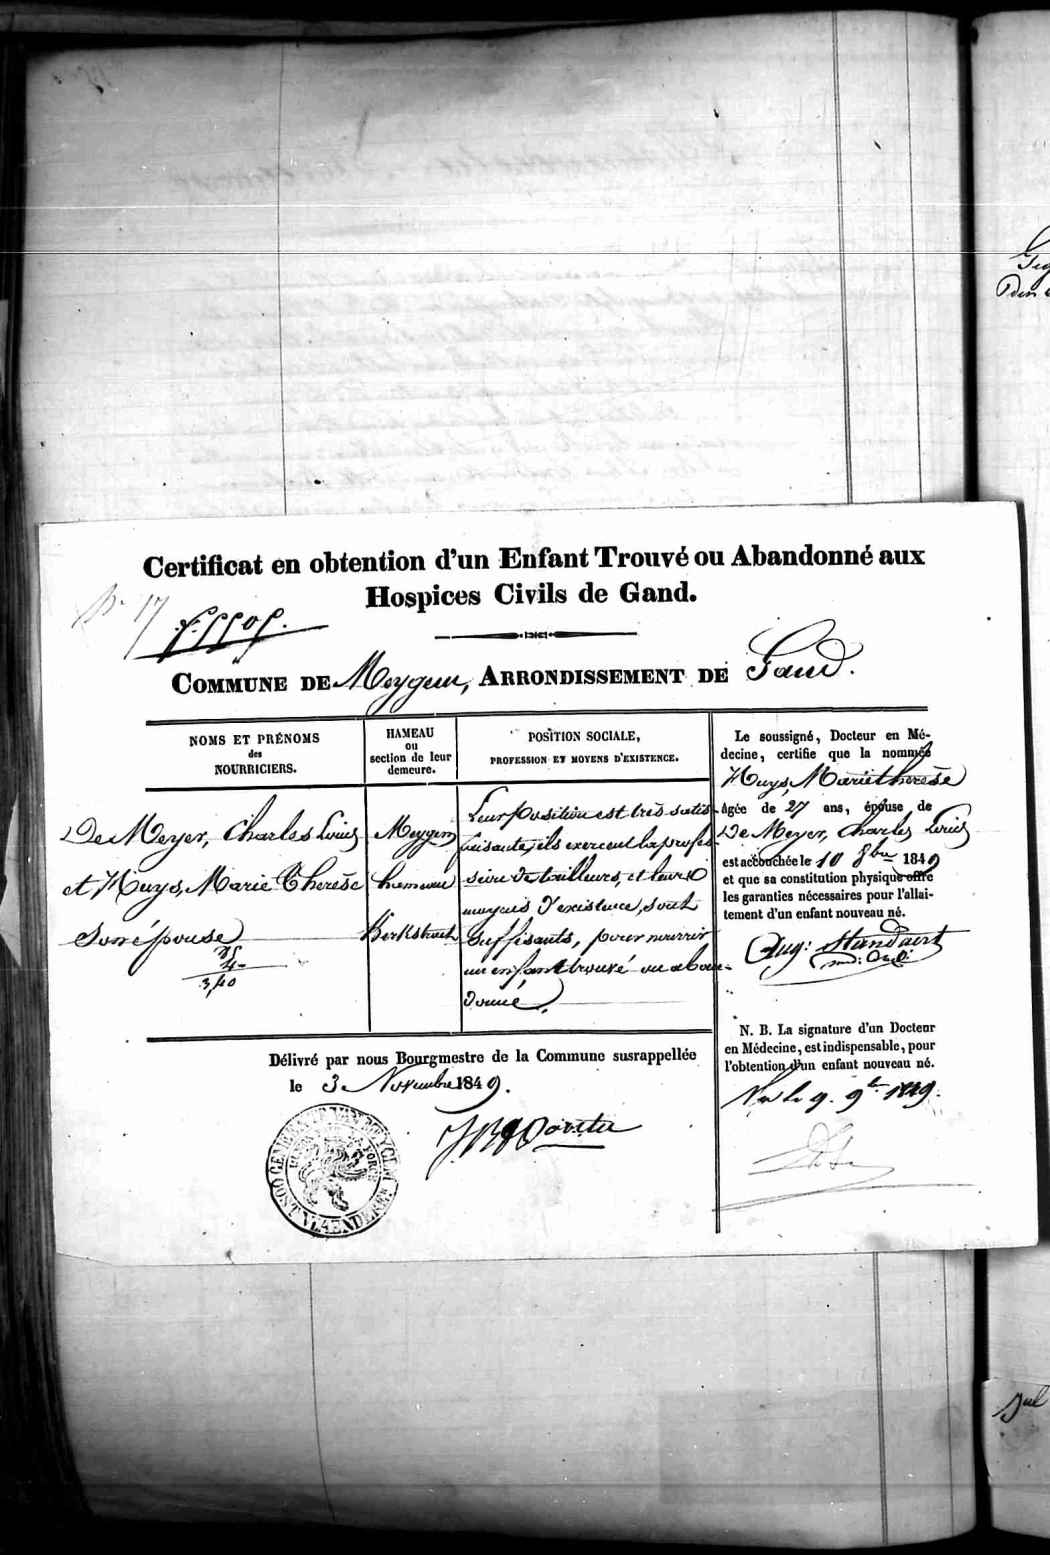 Certificat en obtention d'un Enfant Trouvé ou Abandonné aux
Hospices Civils de Gand.
N° 17
COMMUNE DE Meygem, ARRONDISSEMENT DE Gand.
NOMS ET PRÉNOMS
des
NOURRICIERS.
De Meyer, Charles Louis
et Huys, Marie Therèse
son épouse
3,40
HAMEAU
ou
section de leur
demeure.
Meygem
hameau
Kerkstraat
POSITION SOCIALE,
PROFESSION ET MOYENS D'EXISTENCE.
Leur position est très satis-
faisante, ils exercent la profes
sion de tailleurs, et leurs
moyens d'existence, sont
suffisants, pour nourrir
un enfant trouvé ou aban-
donné.
Le soussigné, Docteur en Mé-
decine, certifie que la nommée
Huys, Marie therèse
âgée de 27 ans, épouse de
De Meyer, Charles Louis
est accouchée le 10 8bre 1849
et que sa constitution physique offre
les garanties nécessaires pour l'allai-
tement d'un enfant nouveau né.
Aug: Standaert
N. B. La signature d'un Docteur
en Médecine, est indispensable, pour
l'obtention d'un enfant nouveau né.
Vu le 9. 9bre 1849.
Délivré par nous Bourgmestre de la Commune susrappellée
le 3 Novembre 1849.
GEMEENTE VAN MEYGEM
OOST VLAENDEREN